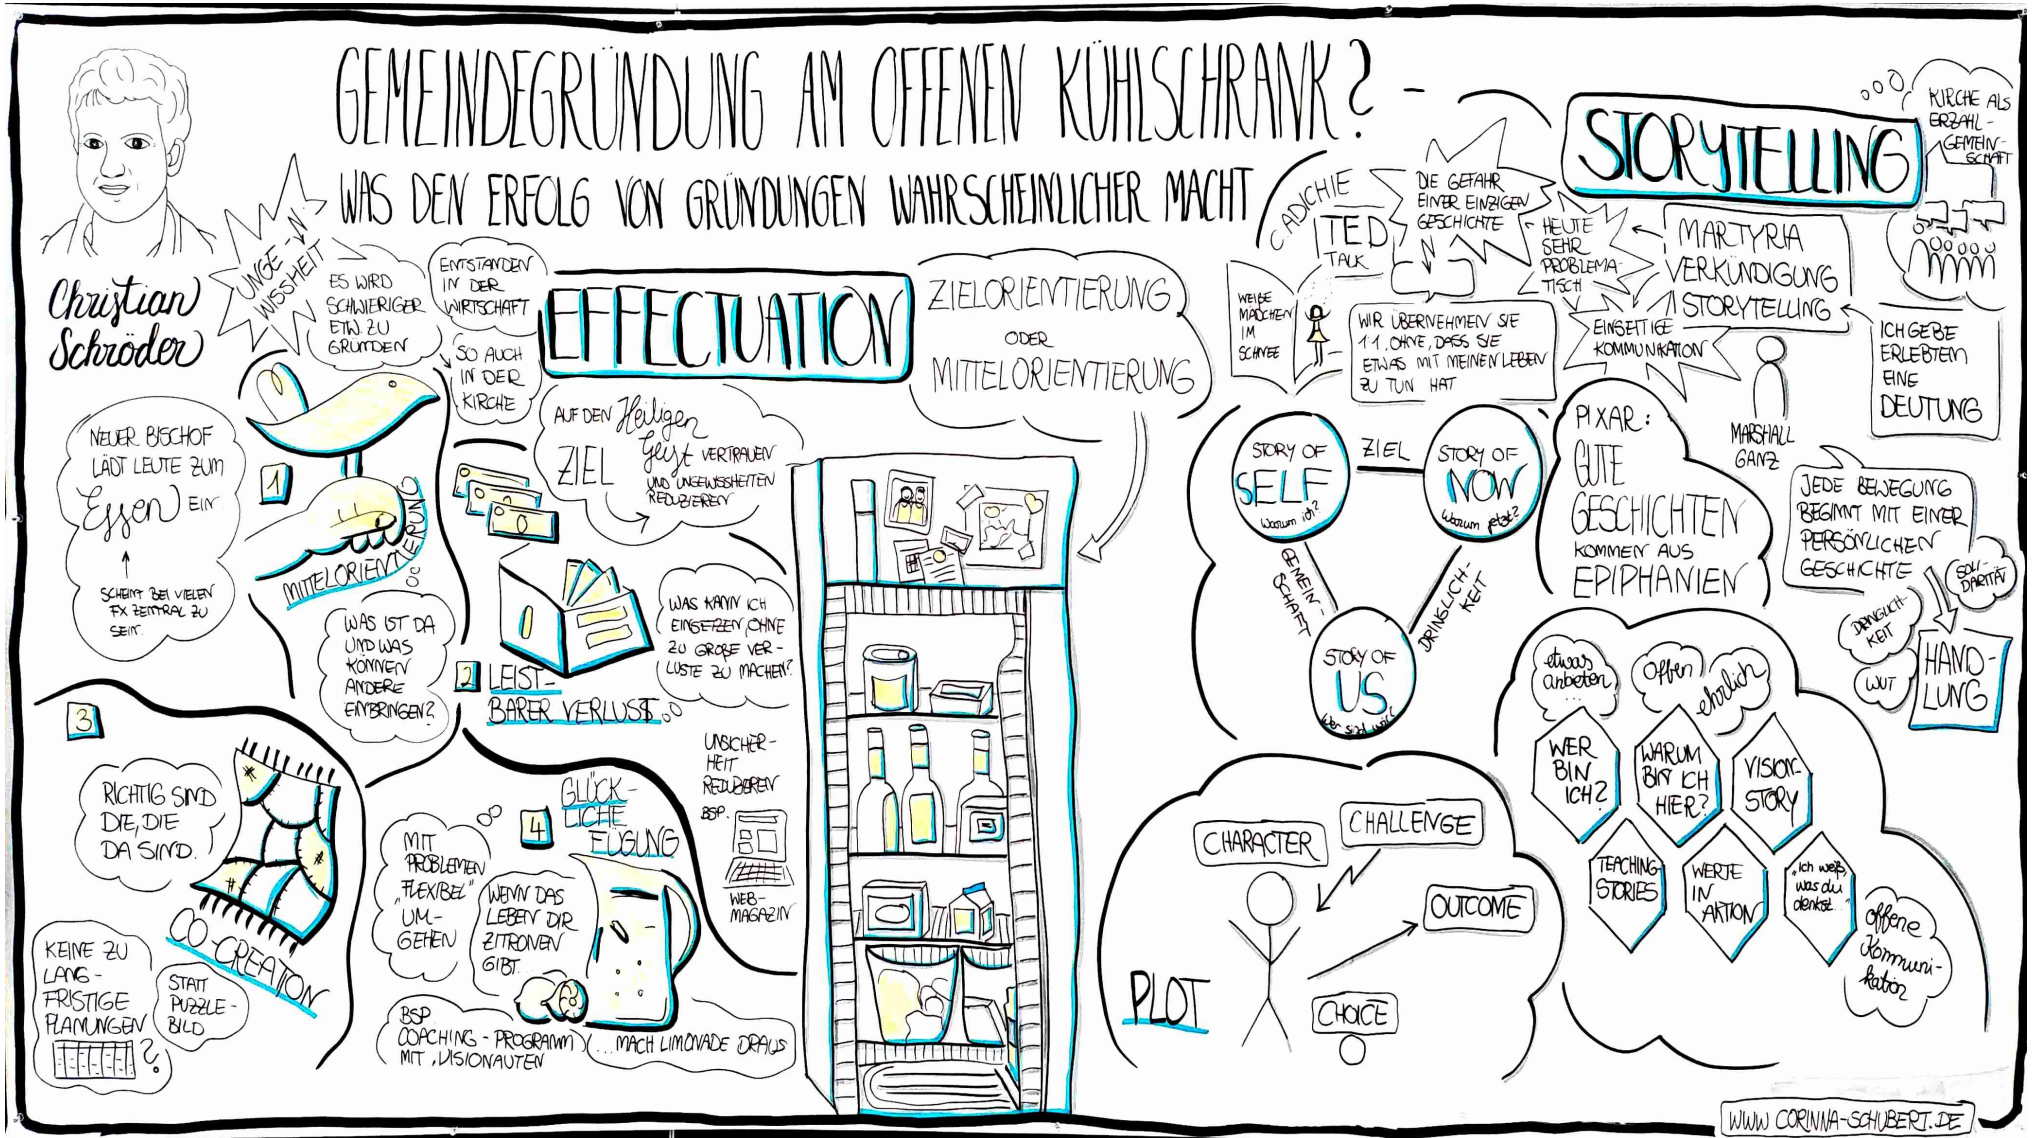 GEMEINDEGRÜNDUNG AM OFFENEN KÜHLSCHRANK? -
WAS DEN ERFOLG VON GRÜNDUNGEN WAHRSCHEINLICHER MACHT
Christian
Schröder
UNGE-
WISSHEIT
ES WIRD
SCHWIERIGER
ETW. ZU
GRÜNDEN
ENTSTANDEN
IN DER
WIRTSCHAFT
SO AUCH
IN DER
KIRCHE
EFFECTUATION
ZIELORIENTIERUNG
ODER
MITTELORIENTIERUNG
NEUER BISCHOF
LÄDT LEUTE ZUM
Essen EIN
SCHEINT BEI VIELEN
FX ZENTRAL ZU
SEIN.
1
MITTELORIENTIERUNG
WAS IST DA
UND WAS
KÖNNEN
ANDERE
EINBRINGEN?
AUF DEN Heiligen
Geist VERTRAUEN
ZIEL
UND UNGEWISSHEITEN
REDUZIEREN
2
LEIST-
BARER VERLUST
WAS KANN ICH
EINSETZEN, OHNE
ZU GROßE VER-
LUSTE ZU MACHEN?
3
RICHTIG SIND
DIE, DIE
DA SIND.
CO-CREATION
KEINE ZU
LANG-
FRISTIGE
PLANUNGEN
?
STATT
PUZZLE-
BILD
4
GLÜCK-
LICHE
FÜGUNG
MIT
PROBLEMEN
"FLEXIBEL"
UM-
GEHEN
WENN DAS
LEBEN DIR
ZITRONEN
GIBT...
...MACH LIMONADE DRAUS
BSP.
COACHING-PROGRAMM
MIT "VISIONAUTEN
UNSICHER-
HEIT
REDUZIEREN
BSP.
WEB-
MAGAZIN
STORYTELLING
KIRCHE ALS
ERZÄHL-
GEMEIN-
SCHAFT
CADICHIE
TED
TALK
DIE GEFAHR
EINER EINZIGEN
GESCHICHTE
HEUTE
SEHR
PROBLEMA-
TISCH
MARTYRIA
VERKÜNDIGUNG
STORYTELLING
EINSEITIGE
KOMMUNIKATION
ICH GEBE
ERLEBTEM
EINE
DEUTUNG
WEIßE
MÄDCHEN
IM
SCHNEE
WIR ÜBERNEHMEN SIE
1:1, OHNE, DASS SIE
ETWAS MIT MEINEN LEBEN
ZU TUN HAT
STORY OF
SELF
Warum ich?
ZIEL
STORY OF
NOW
Warum jetzt?
GEMEIN-
SCHAFT
DRINGLICH-
KEIT
STORY OF
US
Wer sind wir?
PIXAR:
GUTE
GESCHICHTEN
KOMMEN AUS
EPIPHANIEN
MARSHALL
GANZ
JEDE BEWEGUNG
BEGINNT MIT EINER
PERSÖNLICHEN
GESCHICHTE
SOLI-
DARITÄT
DRINGLICH-
KEIT
WUT
HAND-
LUNG
etwas
anbieten
...
offen
ehrlich
WER
BIN
ICH?
WARUM
BIN ICH
HIER?
VISION-
STORY
TEACHING
STORIES
WERTE
IN
AKTION
"Ich weiß,
was du
denkst..."
offene
Kommuni-
kation
PLOT
CHARACTER
CHALLENGE
OUTCOME
CHOICE
WWW.CORINNA-SCHUBERT.DE